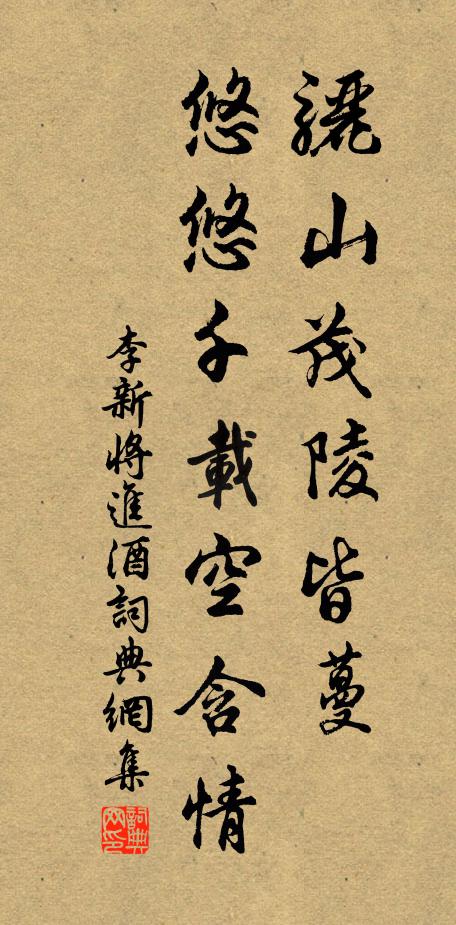 驪山茂陵皆蔓
悠悠千載空含情
李新將進酒詞典網集
詞典網印